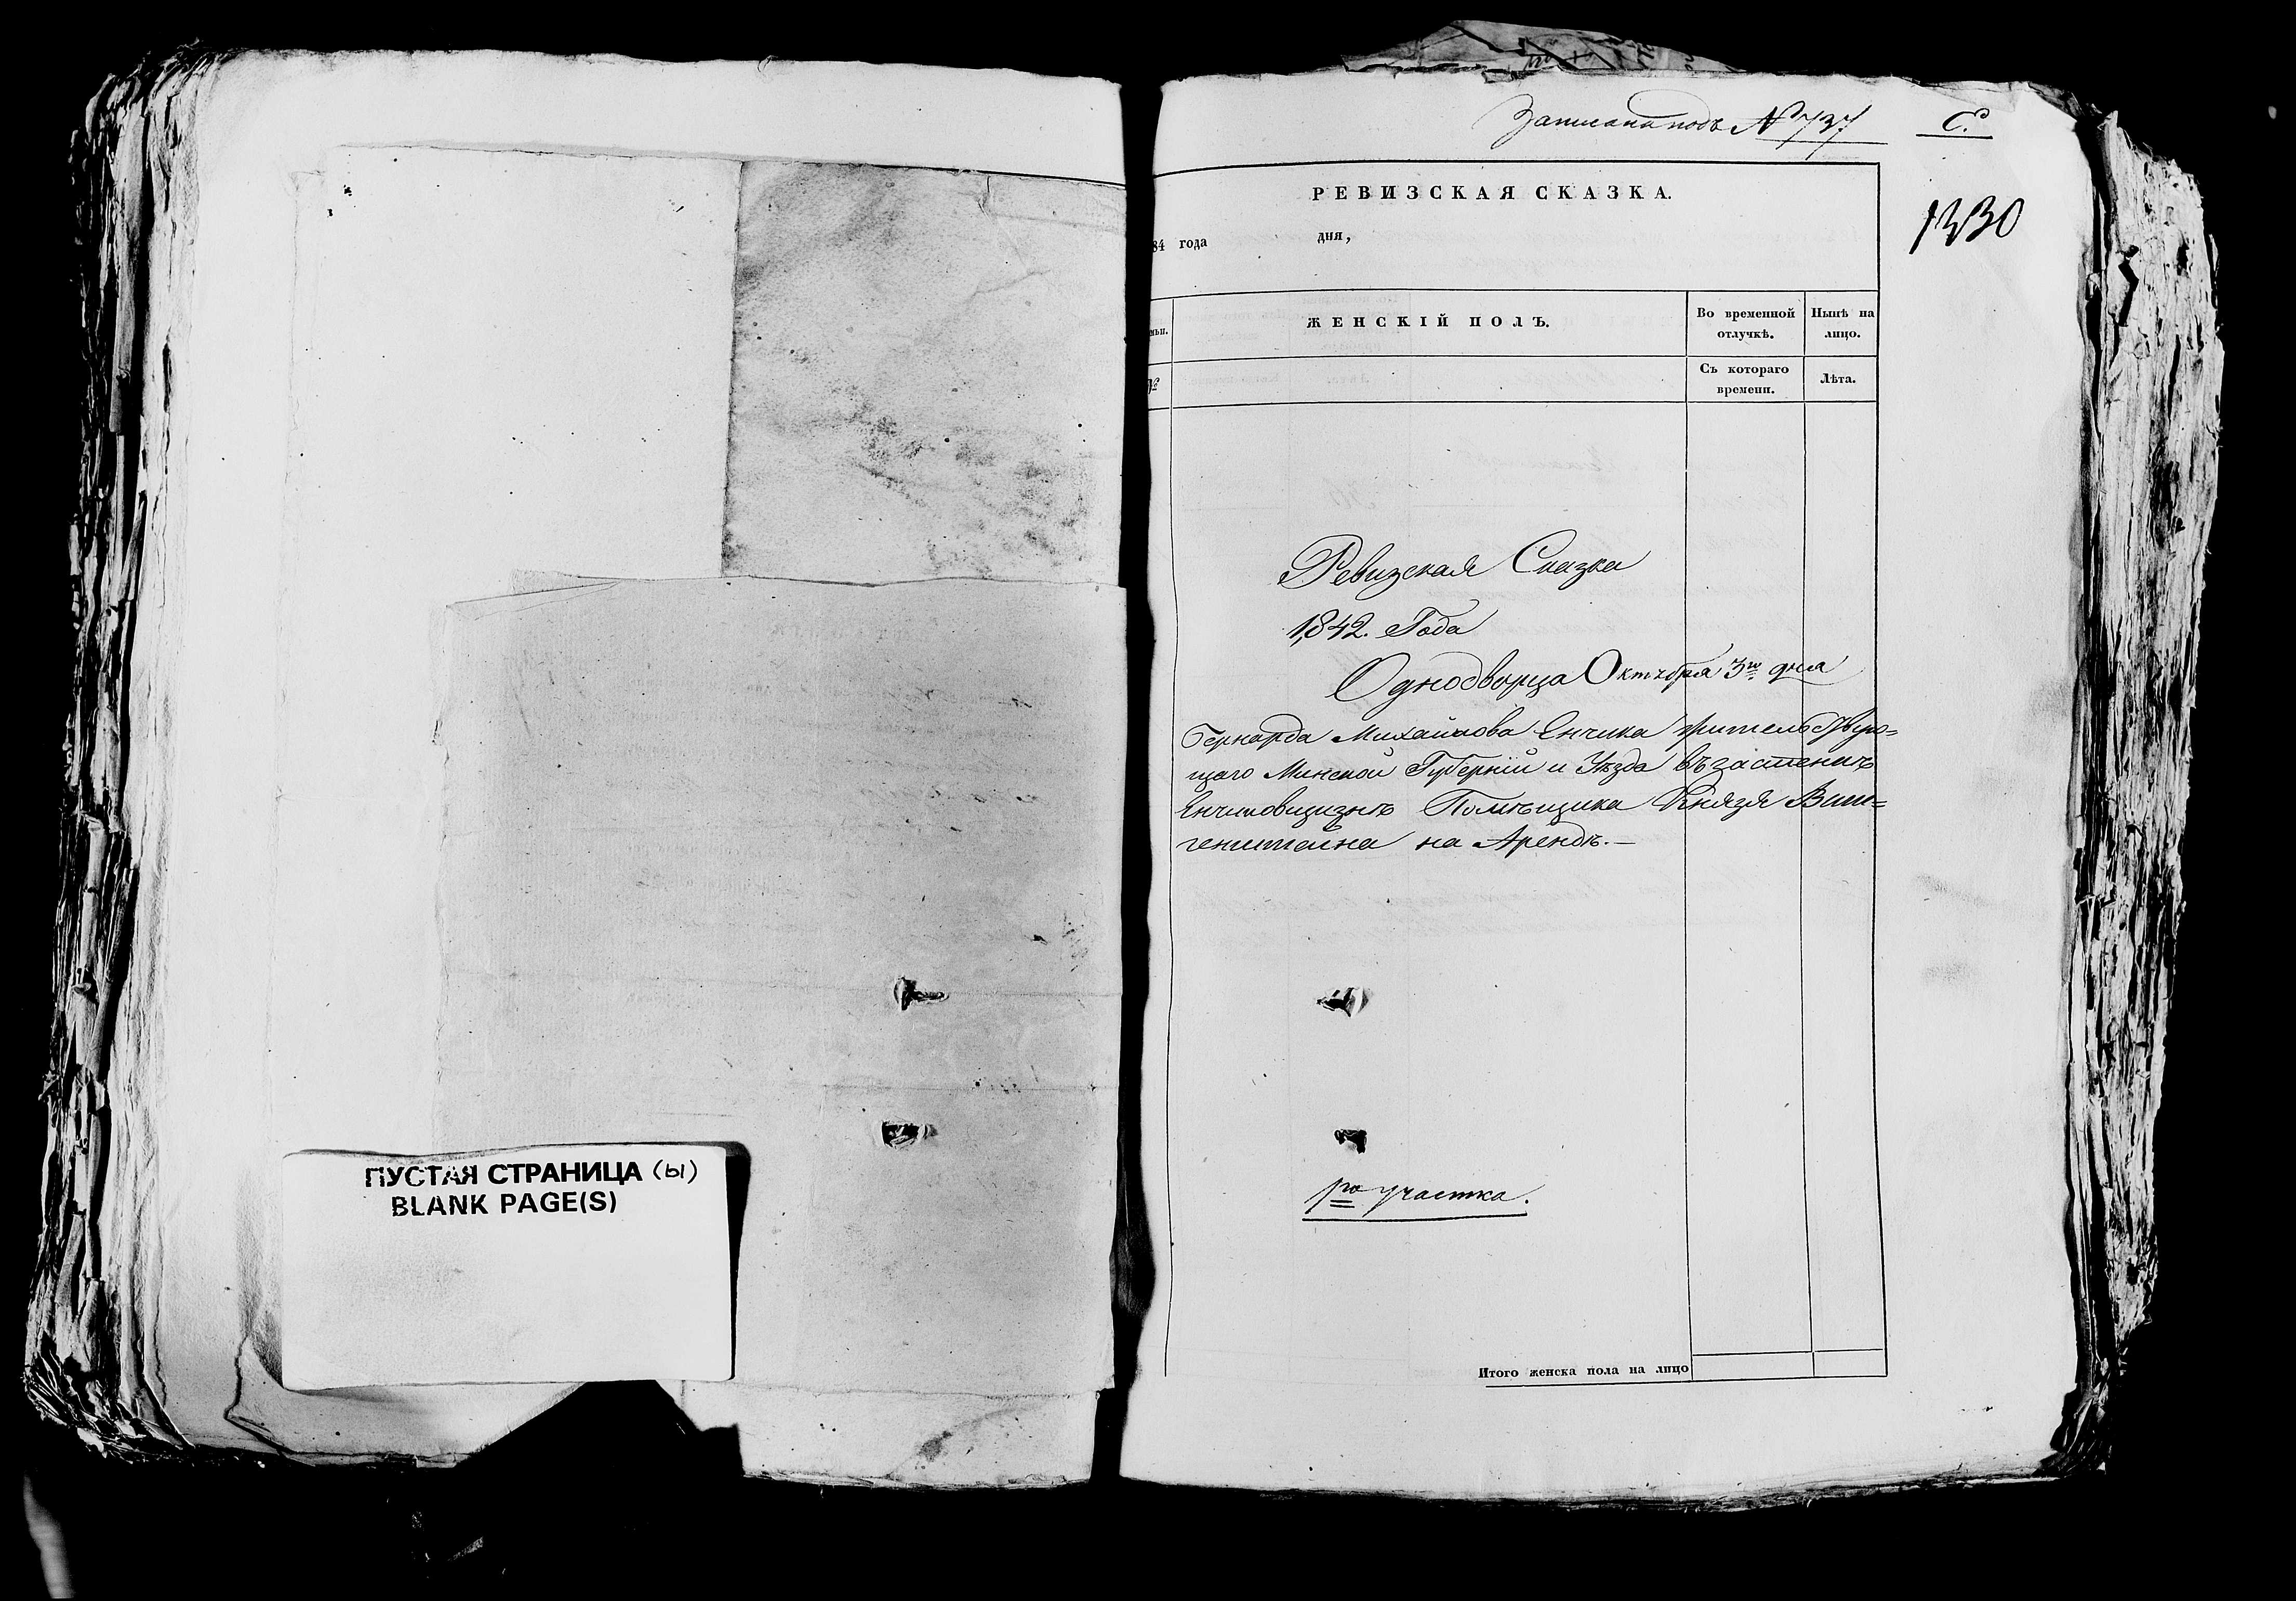 Записана подъ № 737
Е.
РЕВИЗСКАЯ СКАЗКА.
1330
84 года дня,
мьи. ЖЕНСКІЙ ПОЛЪ. Во временной отлучкѣ. Нынѣ на лицо.
№ Съ котораго времени. Лѣта.
Ревизская Сказка
1842. Года
Однодворца Октября 3го дня
Бернарда Михайлова Енчика жительствую=
щаго Минской Губерніи и Уѣзда въ застенкѣ
Енчиковщизнѣ Помѣщика Князя Вит=
генштейна на Арендѣ.—
1го участка.
Итого женска пола на лицо
ПУСТАЯ СТРАНИЦА (Ы)
BLANK PAGE(S)